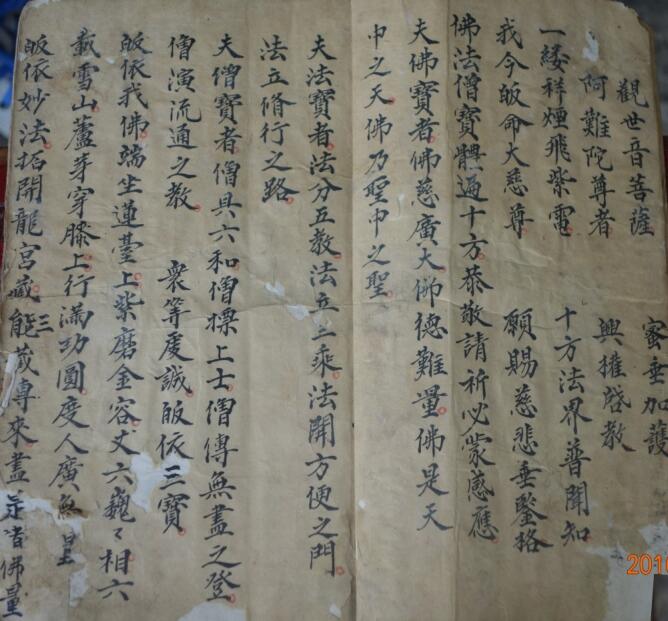 觀世音菩薩 蜜垂加護
阿難陀尊者 興權啓教
一緌祥煙飛紫電 十方法界普聞知
我今皈命大慈尊 願賜慈悲垂鑒格
佛法僧寶體遍十方恭敬請祈必蒙感應
夫佛寶者佛慈廣大佛德難量佛是天
中之天佛乃聖中之聖
夫法寶者法分五教法立三乘法開方便之門
法立脩行之路
夫僧寶者僧具六和僧標上士僧傳無盡之登
僧演流通之教 衆等虔誠皈依三寶
皈依我佛端坐蓮臺上紫磨金容丈六巍々相六
載雪山蘆芽穿膝上行滿功圓度人廣無量
皈依妙法拓開龍宮藏三能藏專來盡是者佛量
2016